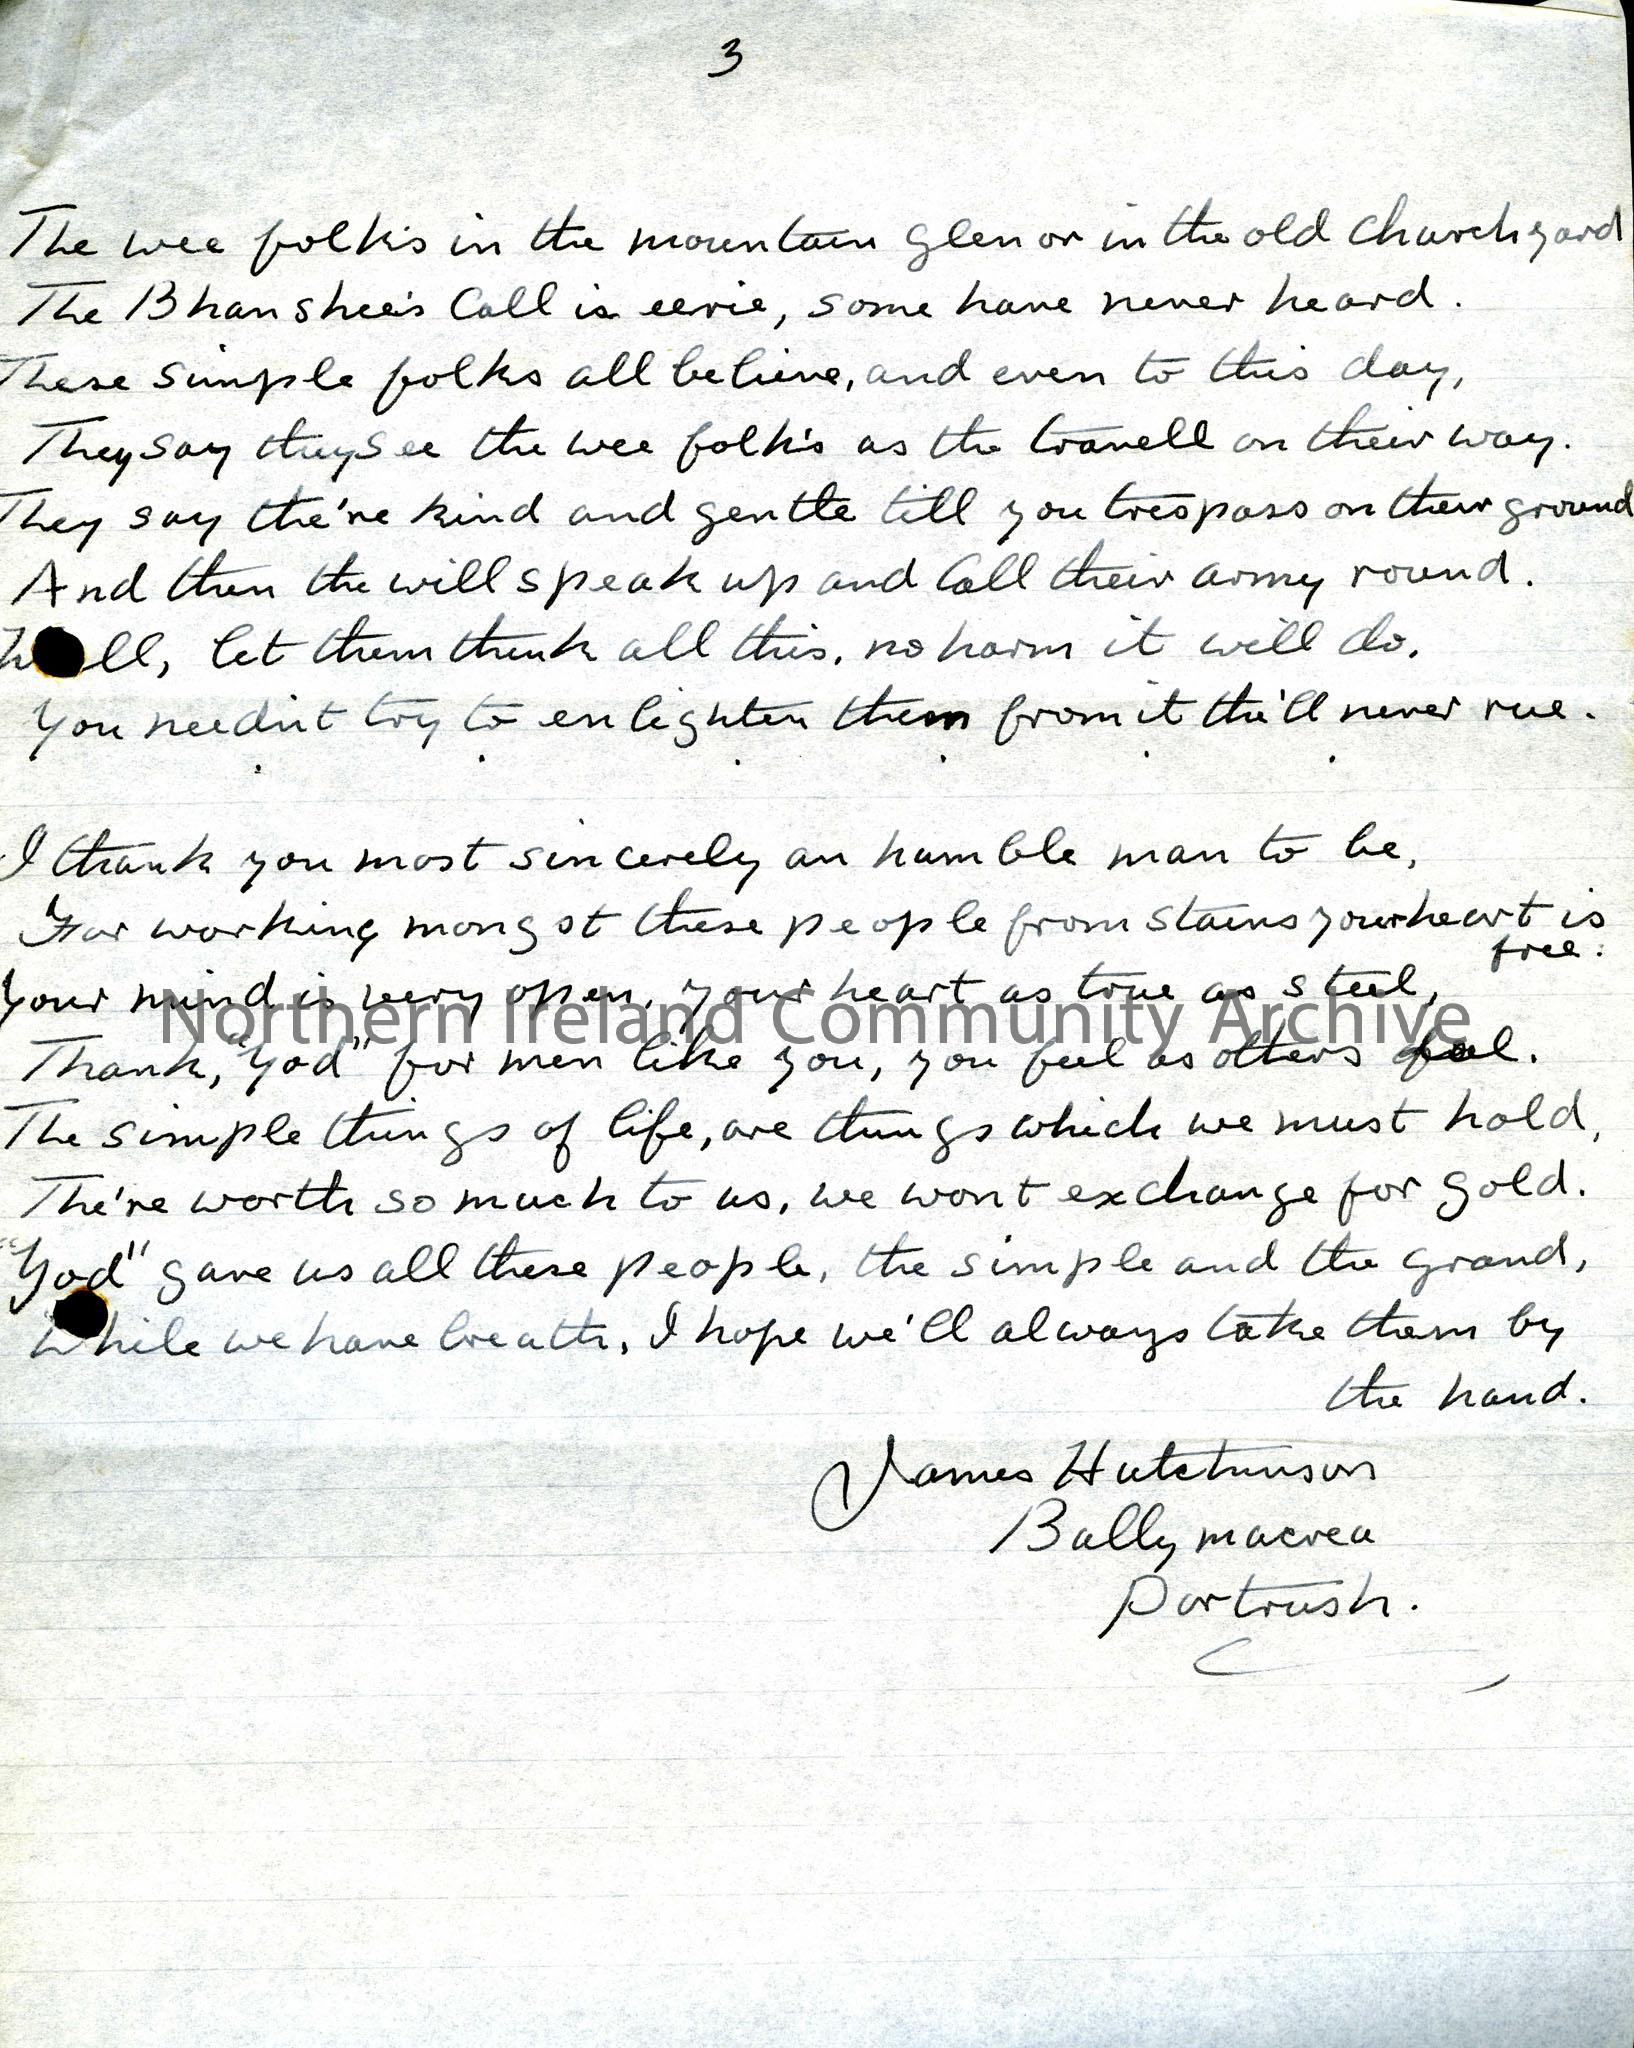 3
The wee folk's in the mountain glen or in the old Churchyard
The Bhanshee's Call is eerie, some have never heard.
These simple folks all believe, and even to this day,
They say they see the wee folk's as the travell on their way.
They say the're kind and gentle till you trespass on their ground
And then the will speak up and Call their army round.
Well, let them think all this, no harm it will do.
You needn't try to enlighten them from it the'll never rue.
. . . . . .
I thank you most sincerely an humble man to be,
For working mongst these people from stains your heart is
free.
Your mind is very open, your heart as true as steel,
Northern Ireland Community Archive
Thank, "God" for men like you, you feel as others feel.
The simple things of life, are things which we must hold,
The're worth so much to us, we wont exchange for gold.
"God" gave us all these people, the simple and the grand,
While we have breath, I hope we'll always take them by
the hand.
James Hutchinson
Ballymacrea
Portrush.